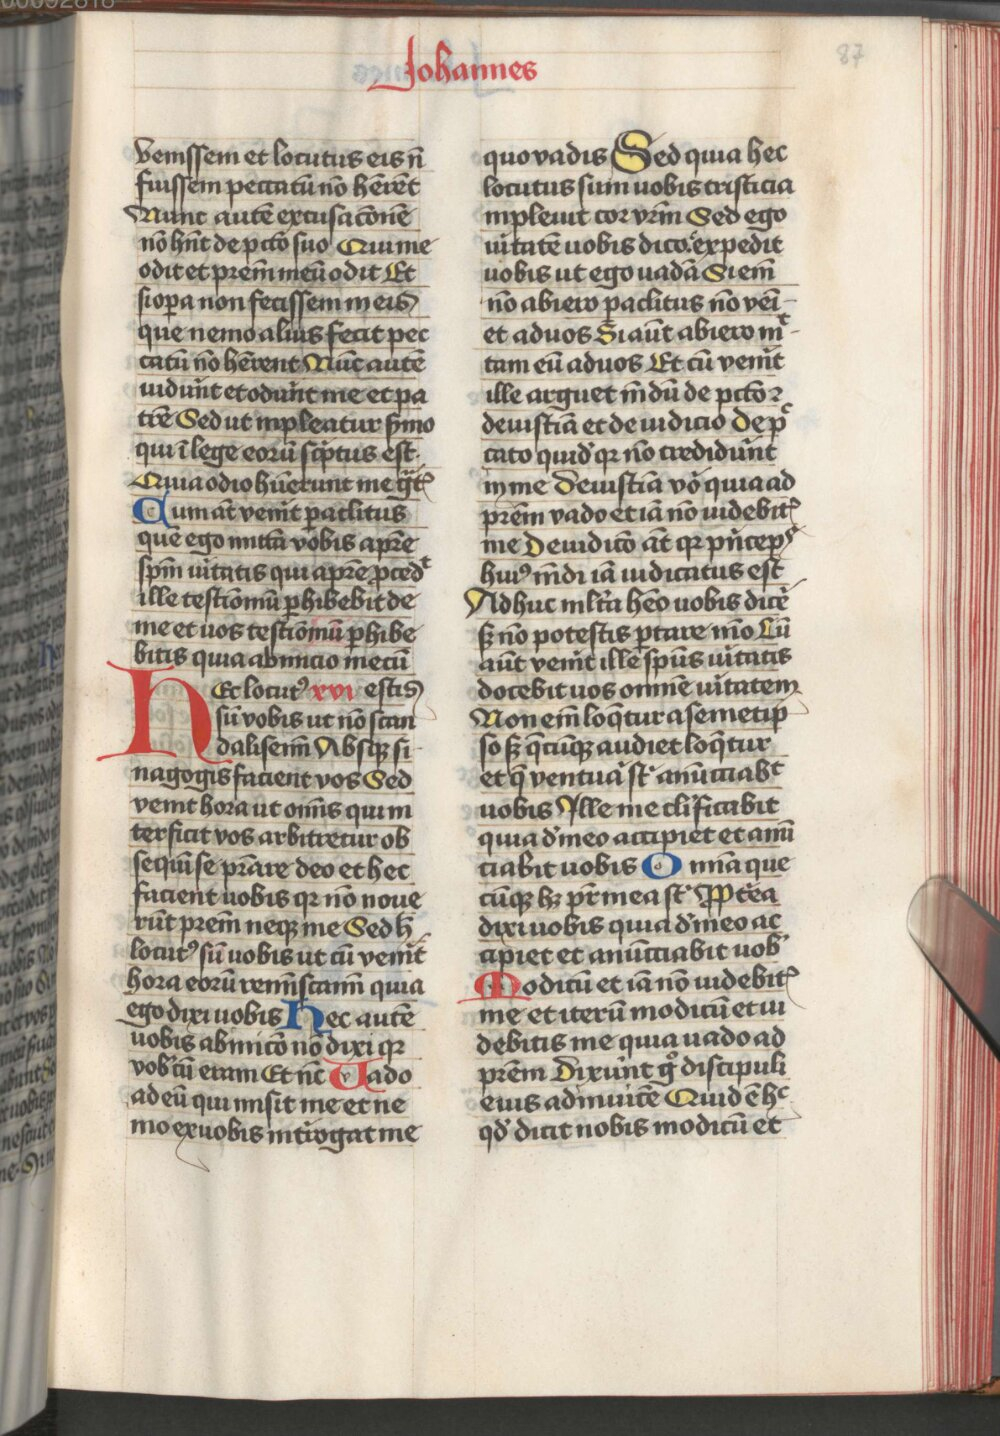 Johannes
87
venissem et locutus eis nō
fuissem peccatū nō hērēt
Nunc autē excusacōnē
nō hn̄t de pcc̄o suo Qui me
odit et prēm meū odit Et
si opa non fecissem in eis
que nemo alius fecit pec
catū nō hērent Nūc autē
vidūt et odūt me et pa
trē Sed ut inpleatur s̄mo
qui ī lege eorū sc̄ptus est
Quia odio hūerunt me gt̄s
Cum at̄ venīt paclitus
quē ego mittā vobis a pr̄e
spm̄ vitatis qui a pr̄e ꝓcedt
ille testīomū phibebit de
me et vos testīomū phibe
bitis quia ab inicio mecū
Hec locutꝰ xvi estis
sū vobis ut nō scan
dalisemī Absqꝫ si
nagogis facient vos Sed
venit hora ut om̄is qui in
terficit vos arbitretur ob
sequiū se pr̄are deo et hec
facient uobis qr nō noue
rūt prēm neqꝫ me Sed h̄
locutꝰ sū uobis ut cū venīt
hora eorū reminiscamī quia
ego dixi uobis Hec autē
uobis ab inicō nō dixi qr
vobcū eram Et nc̄ vado
ad eū qui misit me et ne
mo ex uobis int̄rogat me
quo vadis Sed quia hec
locutus sum uobis tristicia
inpleuit cor vr̄m Sed ego
uitatē uobis dico expedit
uobis ut ego vadā Si em̄
nō abiero paclitus nō veī
et ad uos Si aūt abiero mt
tam eū ad uos Et cū venīt
ille arguet mdū de pcc̄o ꝛ
de iusticia et de iudicio De pc
cato quid qr nō credidūt
in me De iusticiā vō quia ad
prēm vado et iā nō uidebitꝭ
me De iudicō at̄ qr pn̄ceps
huiꝰ mdi iā iudicatus est
Adhuc mlt̄a hēo uobis dicē
sꝫ nō potestis ptare mō Cū
aūt venīt ille spūs uitatis
docebit uos omnē uitatem
Non em̄ loq̄tur a semetip
so sꝫ q̄cūqꝫ audiet loq̄tur
et q̄ ventura st̄ anūciabt
uobis Ille me clificabit
quia d meo accipiet et anū
ciabit uobis Omīa que
cūqꝫ hꝫ pr̄ mea st̄ Ppt̄ea
dixi uobis quia d meo ac
cipiet et anūciabit uob
Modicū et iā nō uidebitꝭ
me et iterū modicū et ui
debitis me quia uado ad
prēm Dixūt gͦ discipuli
eius ad inuicē Quid ē hc
qd dicit nobis modicū et